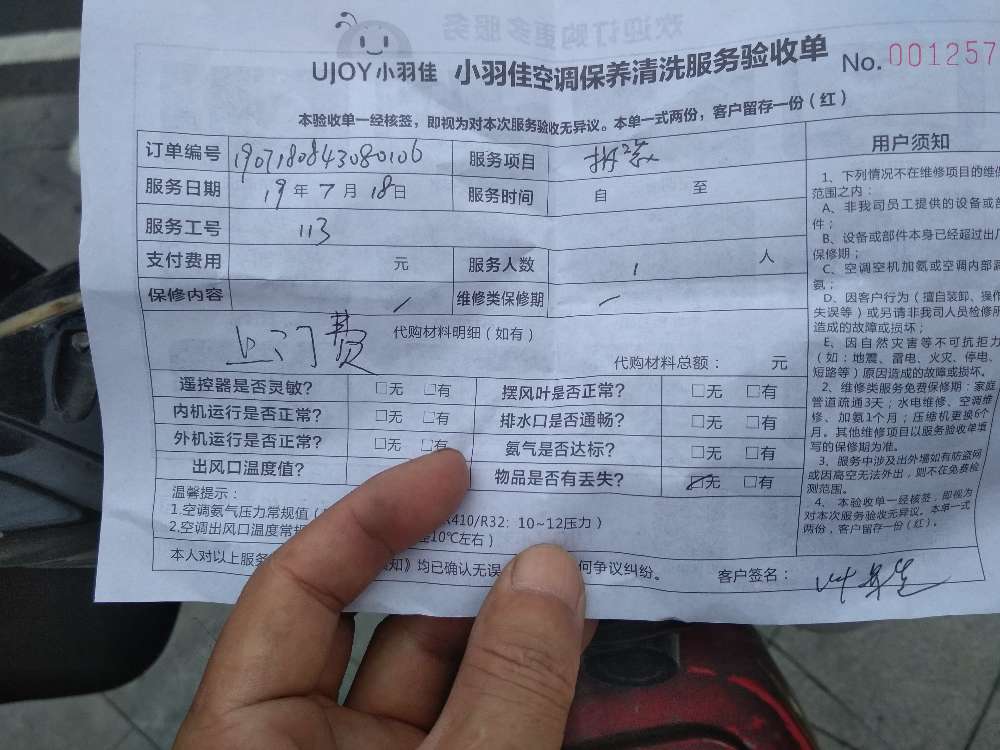 欢迎订购更多服务
UJOY小羽佳 小羽佳空调保养清洗服务验收单 No. 001257
本验收单一经核签，即视为对本次服务验收无异议。本单一式两份，客户留存一份（红）
订单编号 1907180843080106 服务项目 拆装
服务日期 19年7月18日 服务时间 自 至
服务工号 113
支付费用 元 服务人数 1 人
保修内容 / 维修类保修期 /
上门费 代购材料明细（如有）
代购材料总额： 元
遥控器是否灵敏？ □无 □有 摆风叶是否正常？ □无 □有
内机运行是否正常？ □无 □有 排水口是否通畅？ □无 □有
外机运行是否正常？ □无 □有 氨气是否达标？ □无 □有
出风口温度值？ 物品是否有丢失？ ☑无 □有
温馨提示：
1.空调氨气压力常规值（ R410/R32：10~12压力）
2.空调出风口温度常规 10℃左右）
本人对以上服务 知》均已确认无误 何争议纠纷。 客户签名：
用户须知
1、下列情况不在维修项目的维保
范围之内：
A、非我司员工提供的设备或部
件；
B、设备或部件本身已经超过出厂
保修期；
C、空调空机加氨或空调内部漏
氨；
D、因客户行为（擅自装卸、操作
失误等）或另请非我司人员检修所
造成的故障或损坏；
E、因自然灾害等不可抗拒力
（如：地震、雷电、火灾、停电、
短路等）原因造成的故障或损坏。
2、维修类服务免费保修期：家庭
管道疏通3天；水电维修、空调维
修、加氨1个月；压缩机更换6个
月。其他维修项目以服务验收单填
写的保修期为准。
3、服务中涉及出外墙如有防盗网
或因高空无法外出，则不在免费检
测范围。
4、本验收单一经核签，即视为
对本次服务验收无异议。本单一式
两份，客户留存一份（红）。